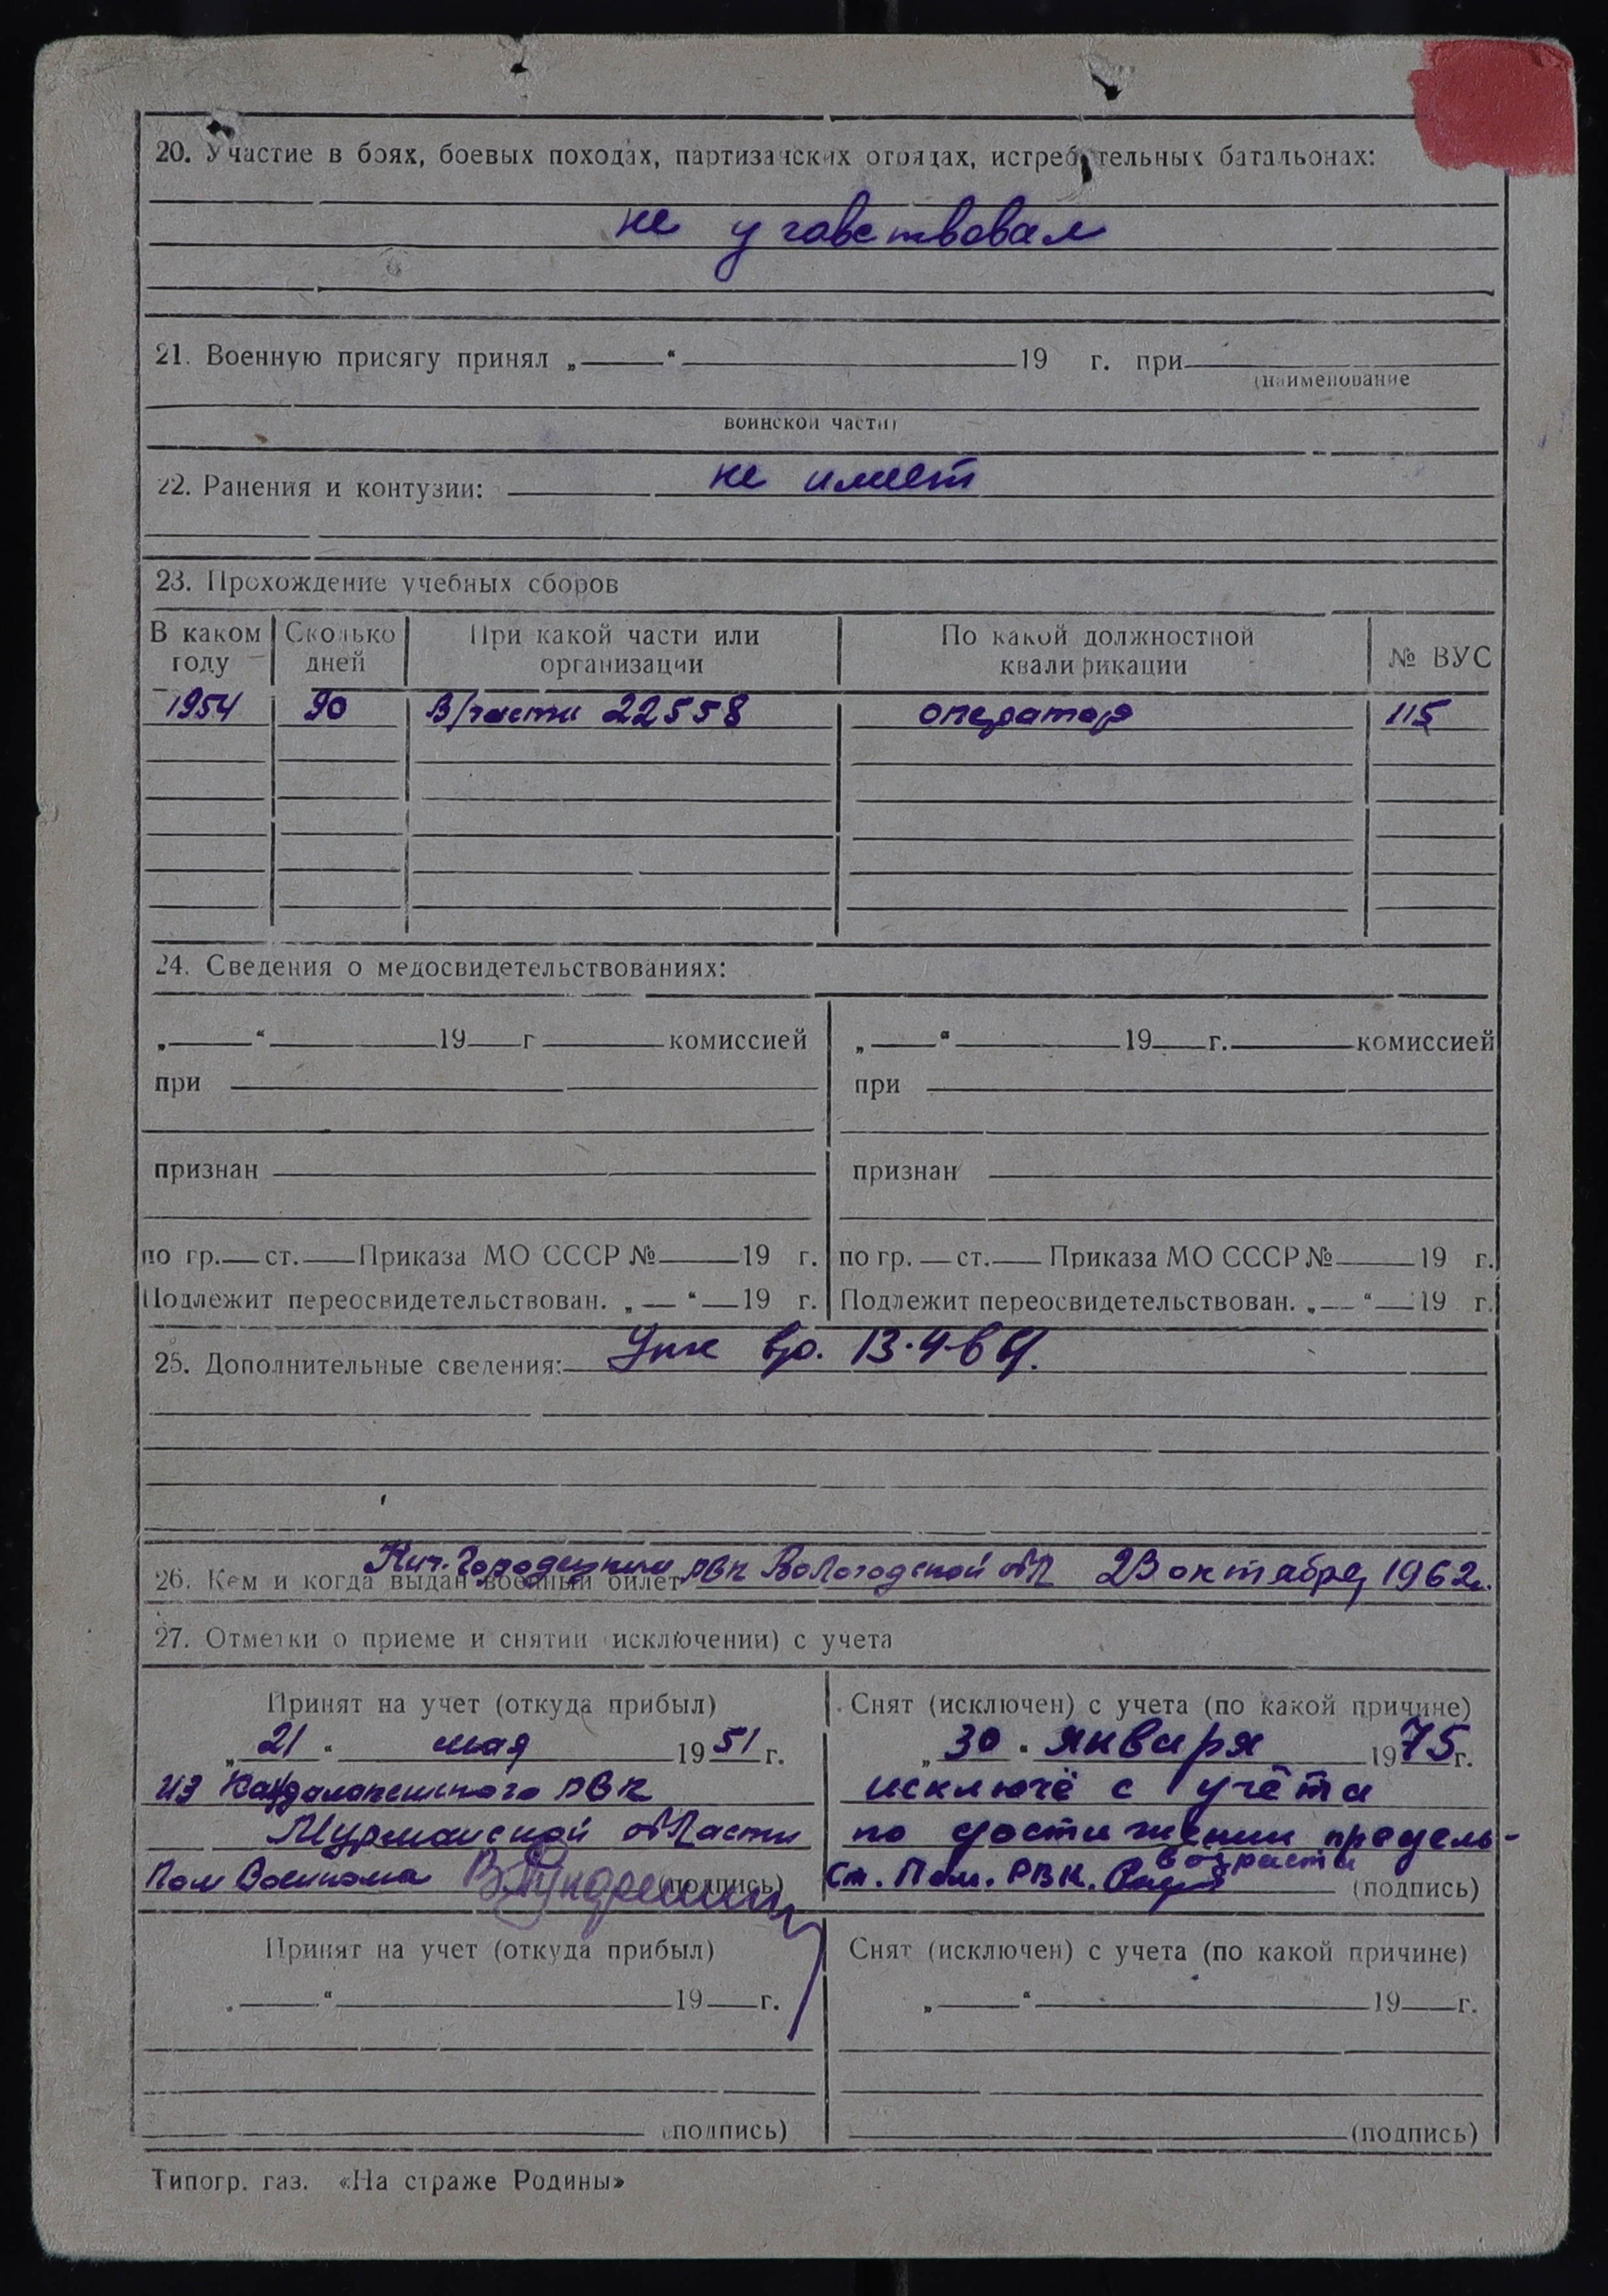 20. Участие в боях, боевых походах, партизанских отрядах, истребительных батальонах:
не учавствовал
21. Военную присягу принял „ “ 19 г. при
(наименование
воинской части)
22. Ранения и контузии: не имеет
23. Прохождение учебных сборов
В каком году Сколько дней При какой части или организации По какой должностной квалификации № ВУС
1954 90 В/части 22558 оператор 115
24. Сведения о медосвидетельствованиях:
„ “ 19 г комиссией „ “ 19 г. комиссией
при при
признан признан
по гр. ст. Приказа МО СССР № 19 г. по гр. ст. Приказа МО СССР № 19 г.
Подлежит переосвидетельствован. „ “ 19 г. Подлежит переосвидетельствован. „ “ 19 г.
25. Дополнительные сведения: 
26. Кем и когда выдан военный билет Кич. Городецким РВК Вологодской обл 23 октября 1962г.
27. Отметки о приеме и снятии (исключении) с учета
Принят на учет (откуда прибыл) Снят (исключен) с учета (по какой причине)
„21“ мая 1951 г. „30“ января 1975г.
из Кандалакшского РВК исключё с учёта
Мурманской области по достижении предель-
возраста
Пом Военкома (подпись) Ст. Пом. РВК. (подпись)
Принят на учет (откуда прибыл) Снят (исключен) с учета (по какой причине)
„ “ 19 г. „ “ 19 г.
(подпись) (подпись)
Типогр. газ. «На страже Родины»